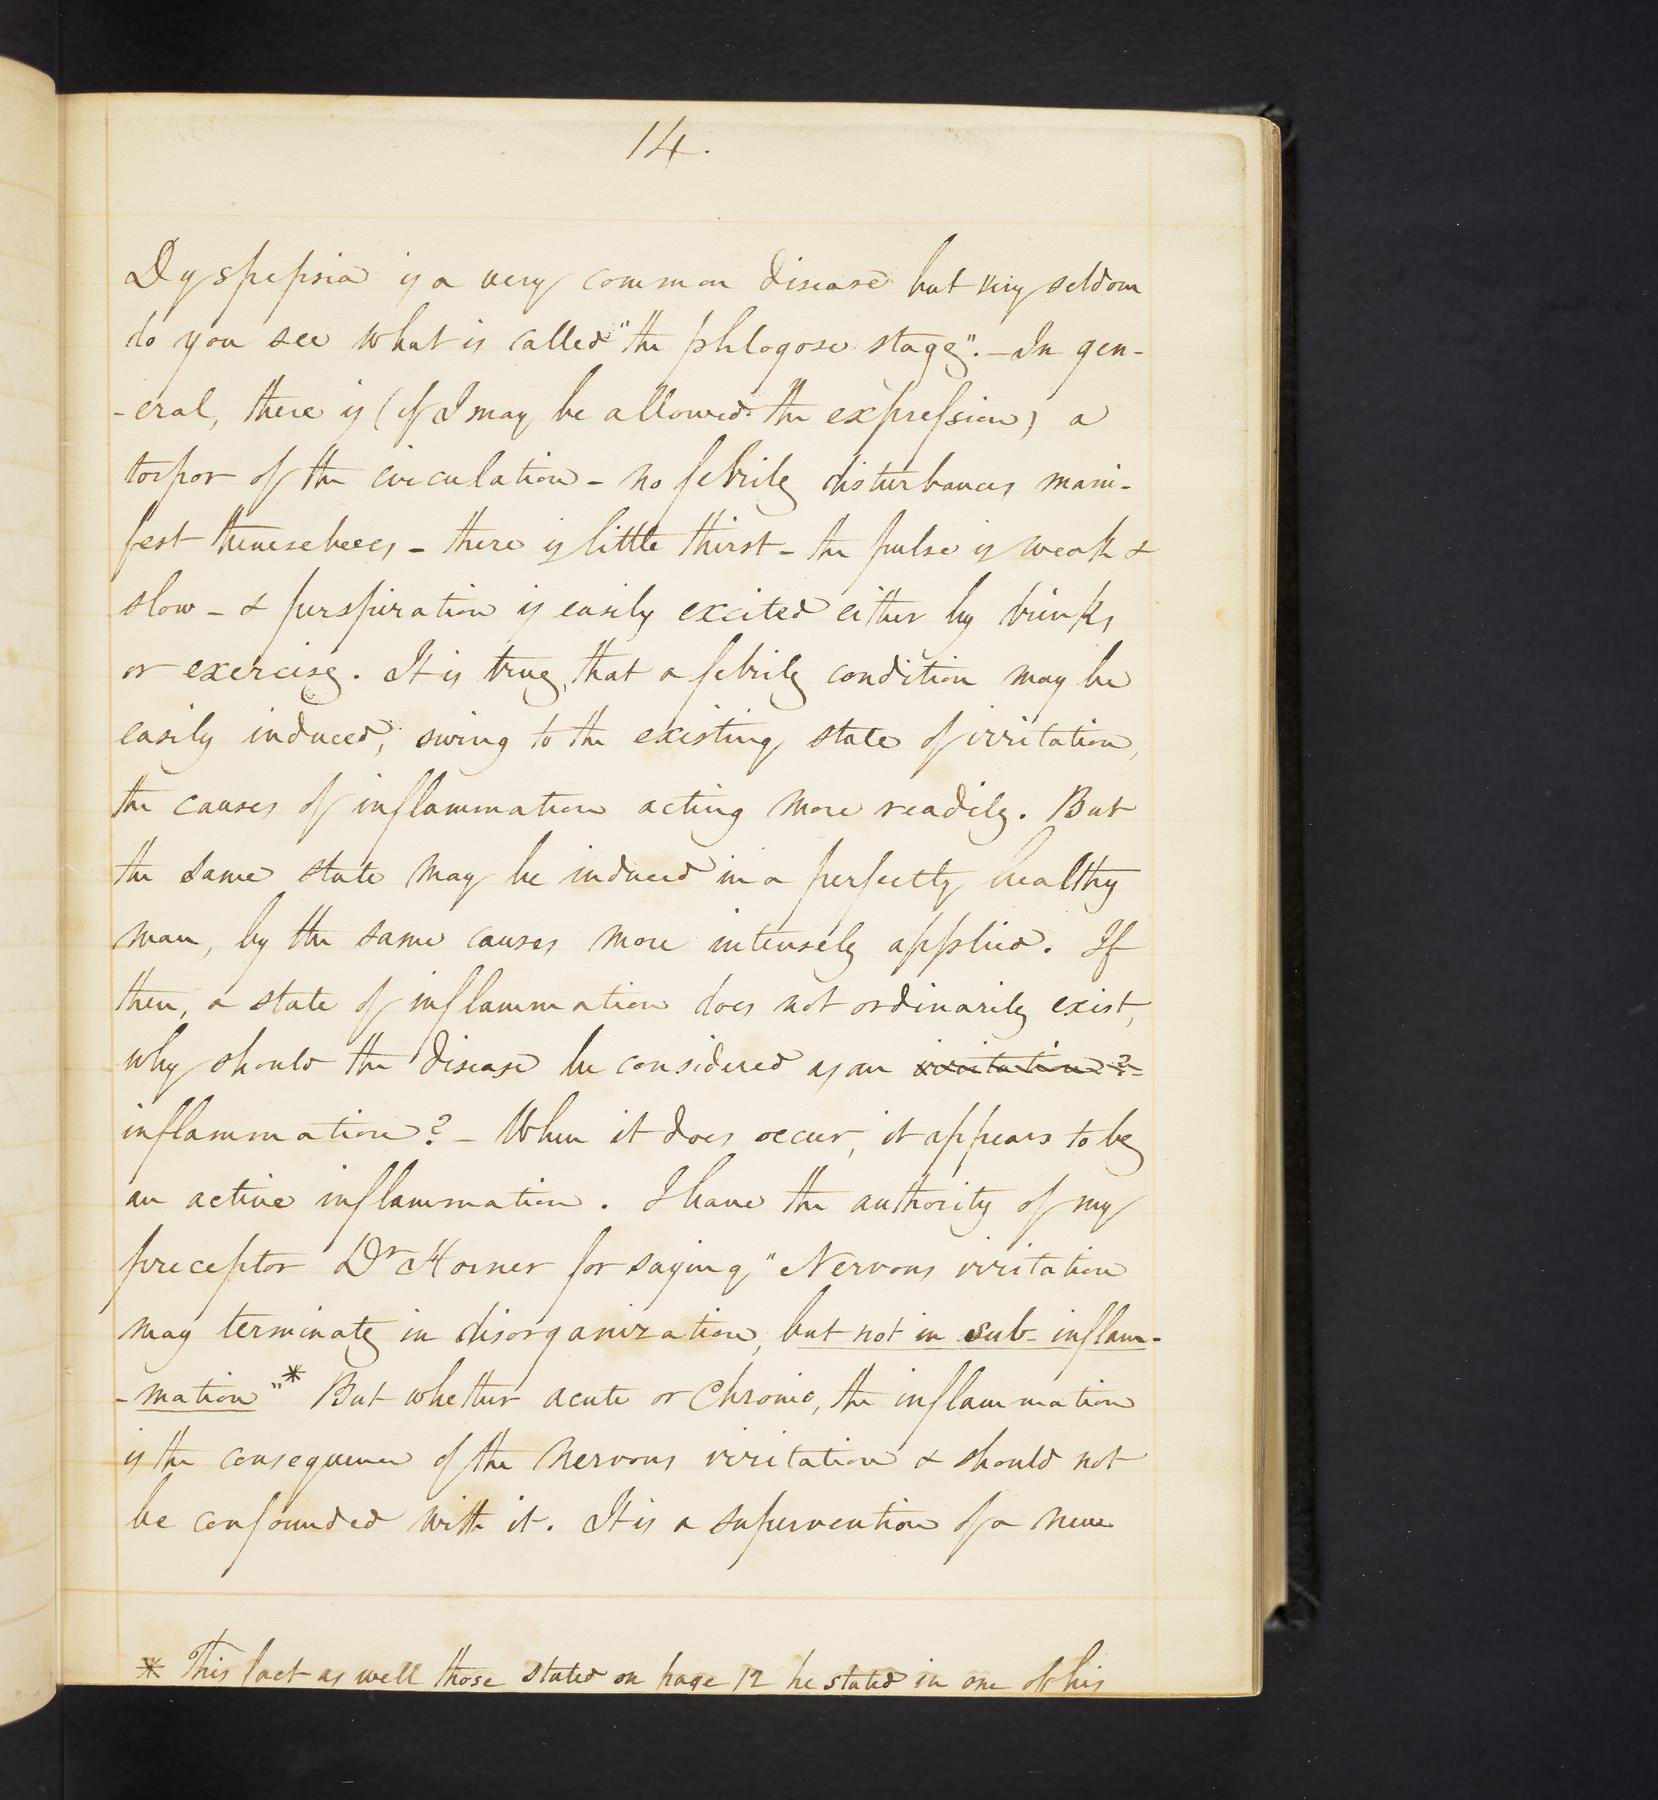 14.
Dyspepsia is a very common disease but very seldom
do you see what is called "the phlogose stage". - In gen-
-eral, there is (if I may be allowed the expression) a
torpor of the circulation - no febrile disturbances mani-
fest themselves - there is little thirst - the pulse is weak &
slow - & perspiration is easily excited either by drinks
or exercise. It is true, that a febrile condition may be
easily induced, owing to the existing state of irritation,
the causes of inflammation acting more readily. But
the same state may be induced in a perfectly healthy
man, by the same causes more intensely applied. If
then, a state of inflammation does not ordinarily exist,
why should the disease be considered as an irritation?
inflammation? - When it does occur, it appears to be
an active inflammation. I have the authority of my
preceptor Dr Horner for saying "Nervous irritation
may terminate in disorganization, but not in sub-inflam-
-mation"* But whether acute or chronic, the inflammation
is the consequence of the nervous irritation & should not
be confounded with it. It is a supervention of a new
* This fact as well those stated on page 12 he stated in one of his